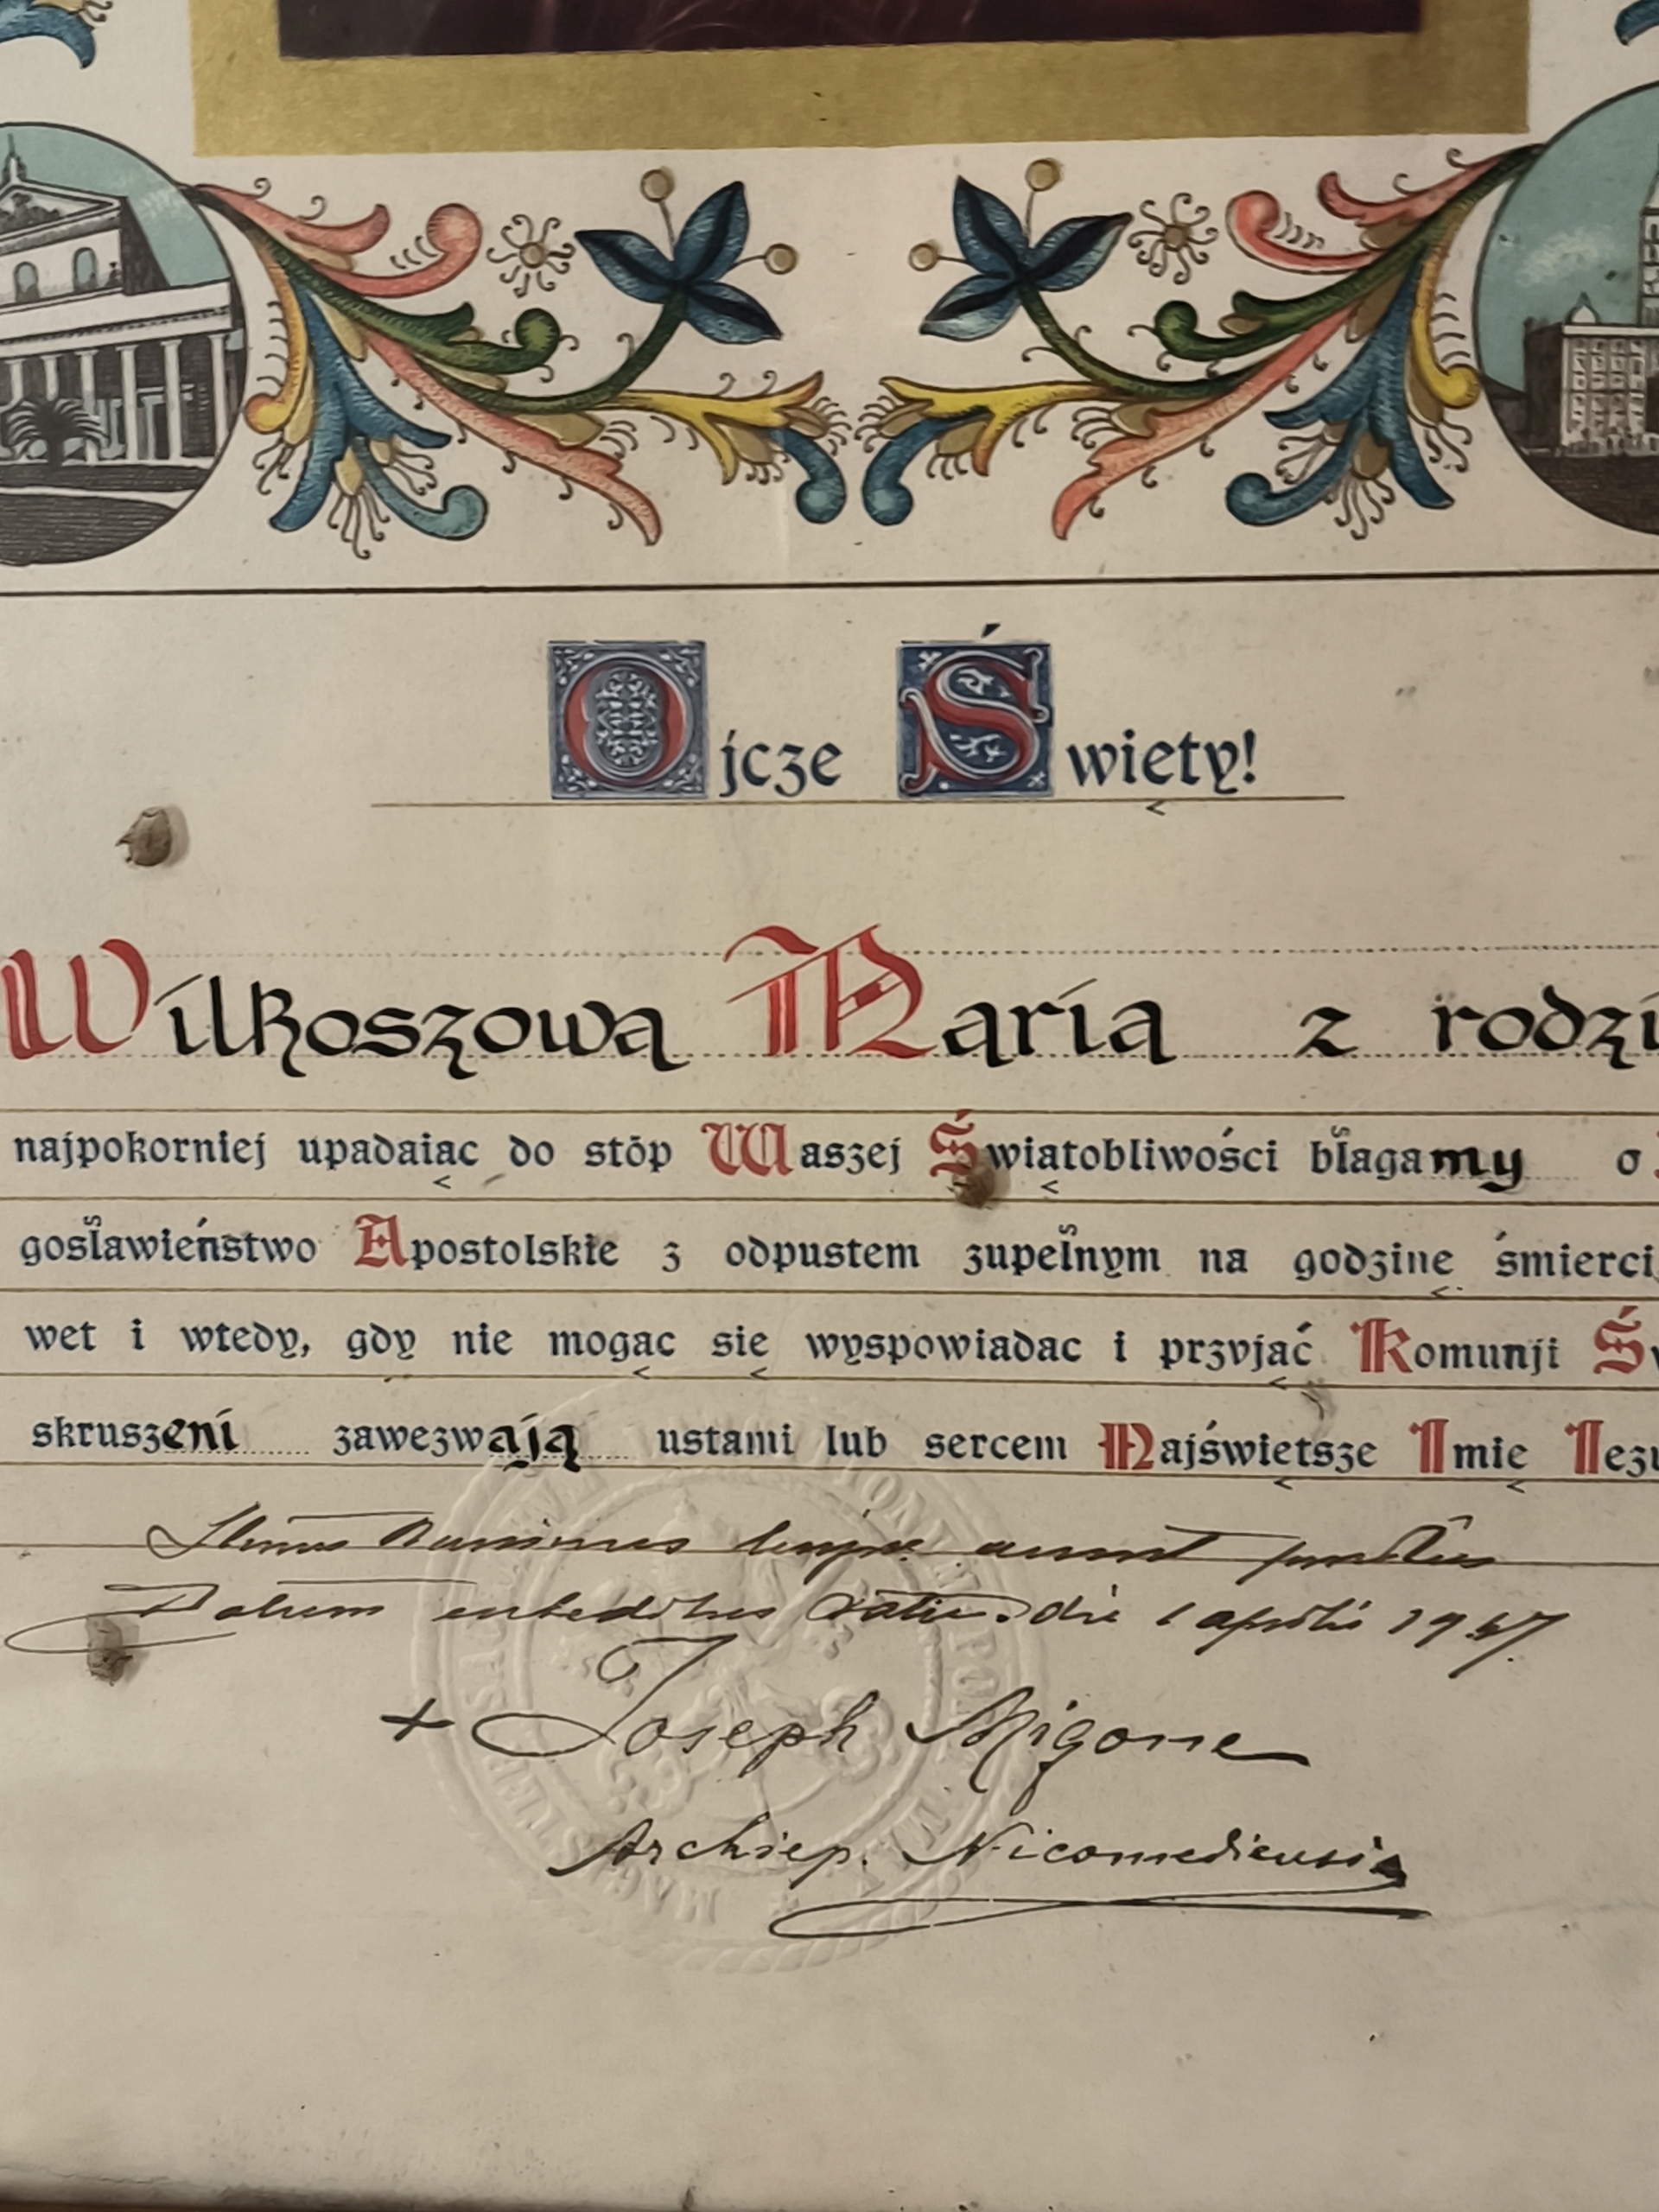 Ojcze Święty!
Wilkoszowa Maria z rodzi
najpokorniej upadaiąc do stóp Waszej Świątobliwości błagamy o
gosławieństwo Apostolskie z odpustem zupełnym na godzinę śmierci,
wet i wtedy, gdy nie mogąc się wyspowiadac i przyjąć Komunji Św
skruszeni zawezwają ustami lub sercem Najświętsze Imię Iezu
Datum ex aedibus Vatic. die 1 aprilis 1937.
+ Joseph Migone
Archiep. Nicomediensis